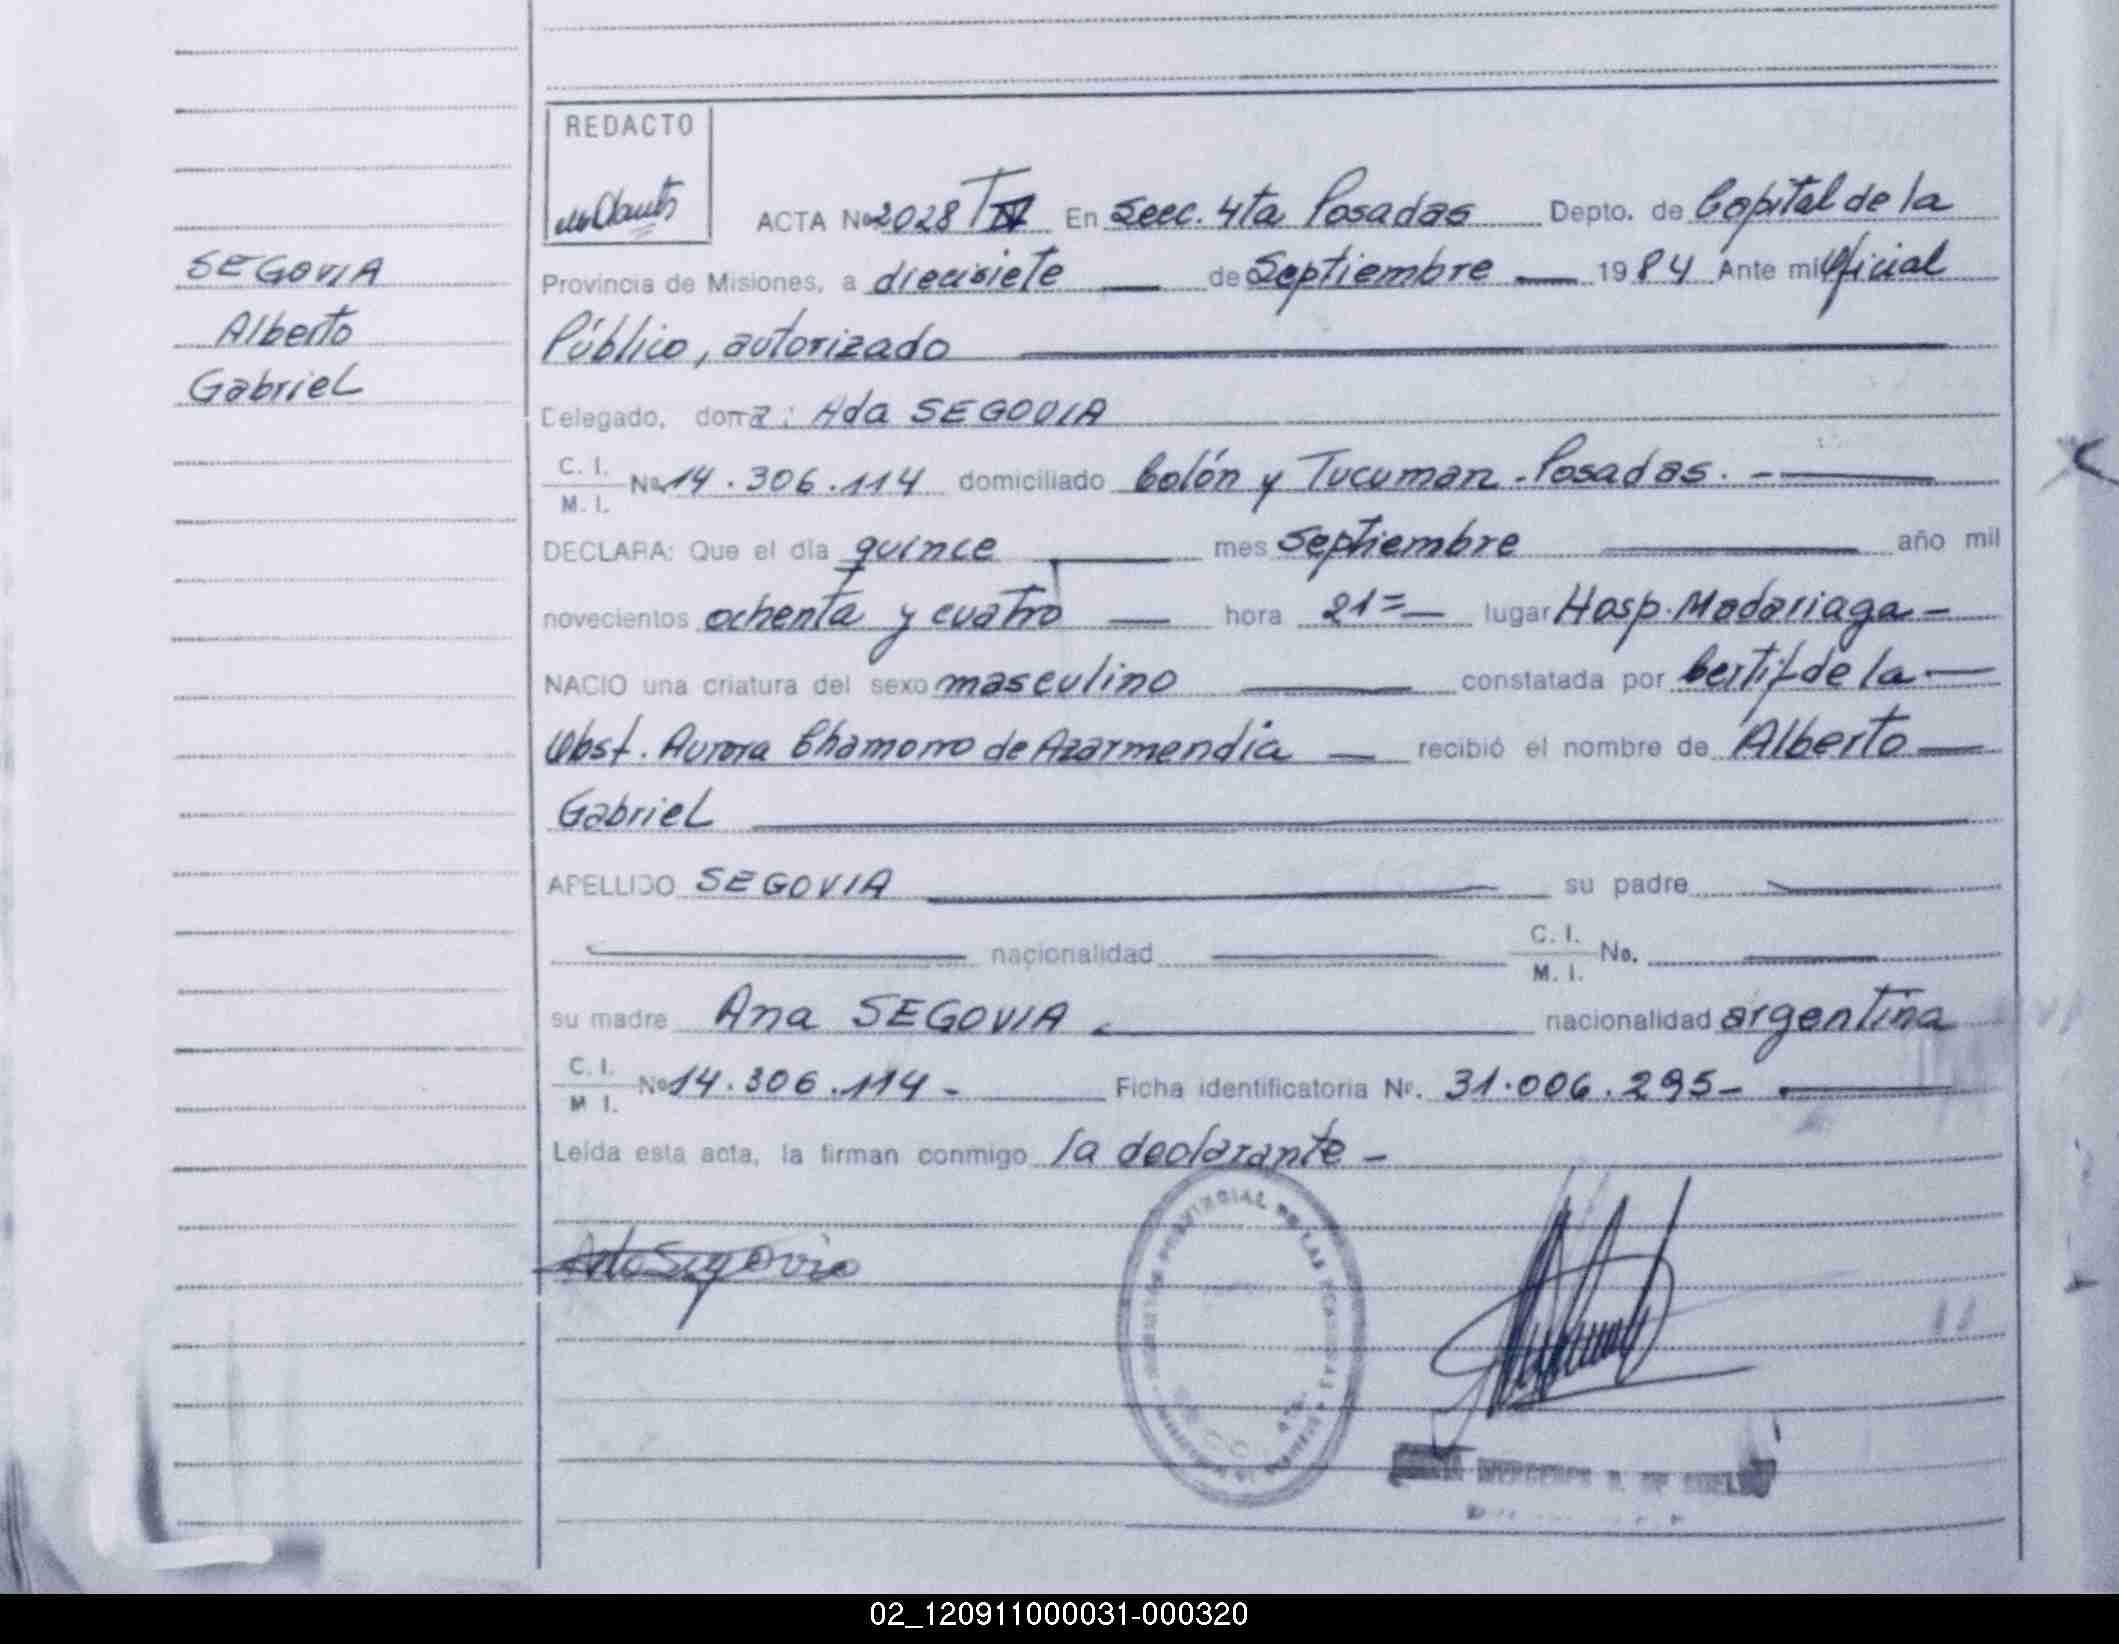 REDACTO
ACTA No 2028 T IV En Secc. 4ta Posadas Depto. de Capital de la
Provincia de Misiones, a diecisiete de Septiembre 1984 Ante mi Oficial
SEGOVIA
Alberto
Gabriel
Público, autorizado
Delegado, doña: Ada SEGOVIA
C. I.
M. I.
No 14.306.114 domiciliado Colón y Tucuman - Posadas. -
DECLARA: Que el día quince mes Septiembre año mil
novecientos ochenta y cuatro hora 21= lugar Hosp. Madariaga -
NACIO una criatura del sexo masculino constatada por Certif de la
Obst. Aurora Chamorro de Azarmendia recibió el nombre de Alberto
Gabriel
APELLIDO SEGOVIA su padre
nacionalidad C. I.
M. I. No.
su madre Ana SEGOVIA nacionalidad argentina
C. I.
M I. No 14.306.114 - Ficha identificatoria No. 31.006.295 -
Leída esta acta, la firman conmigo la declarante -
Ada Segovia
PROVINCIAL DE LAS PERSONAS
02_120911000031-000320